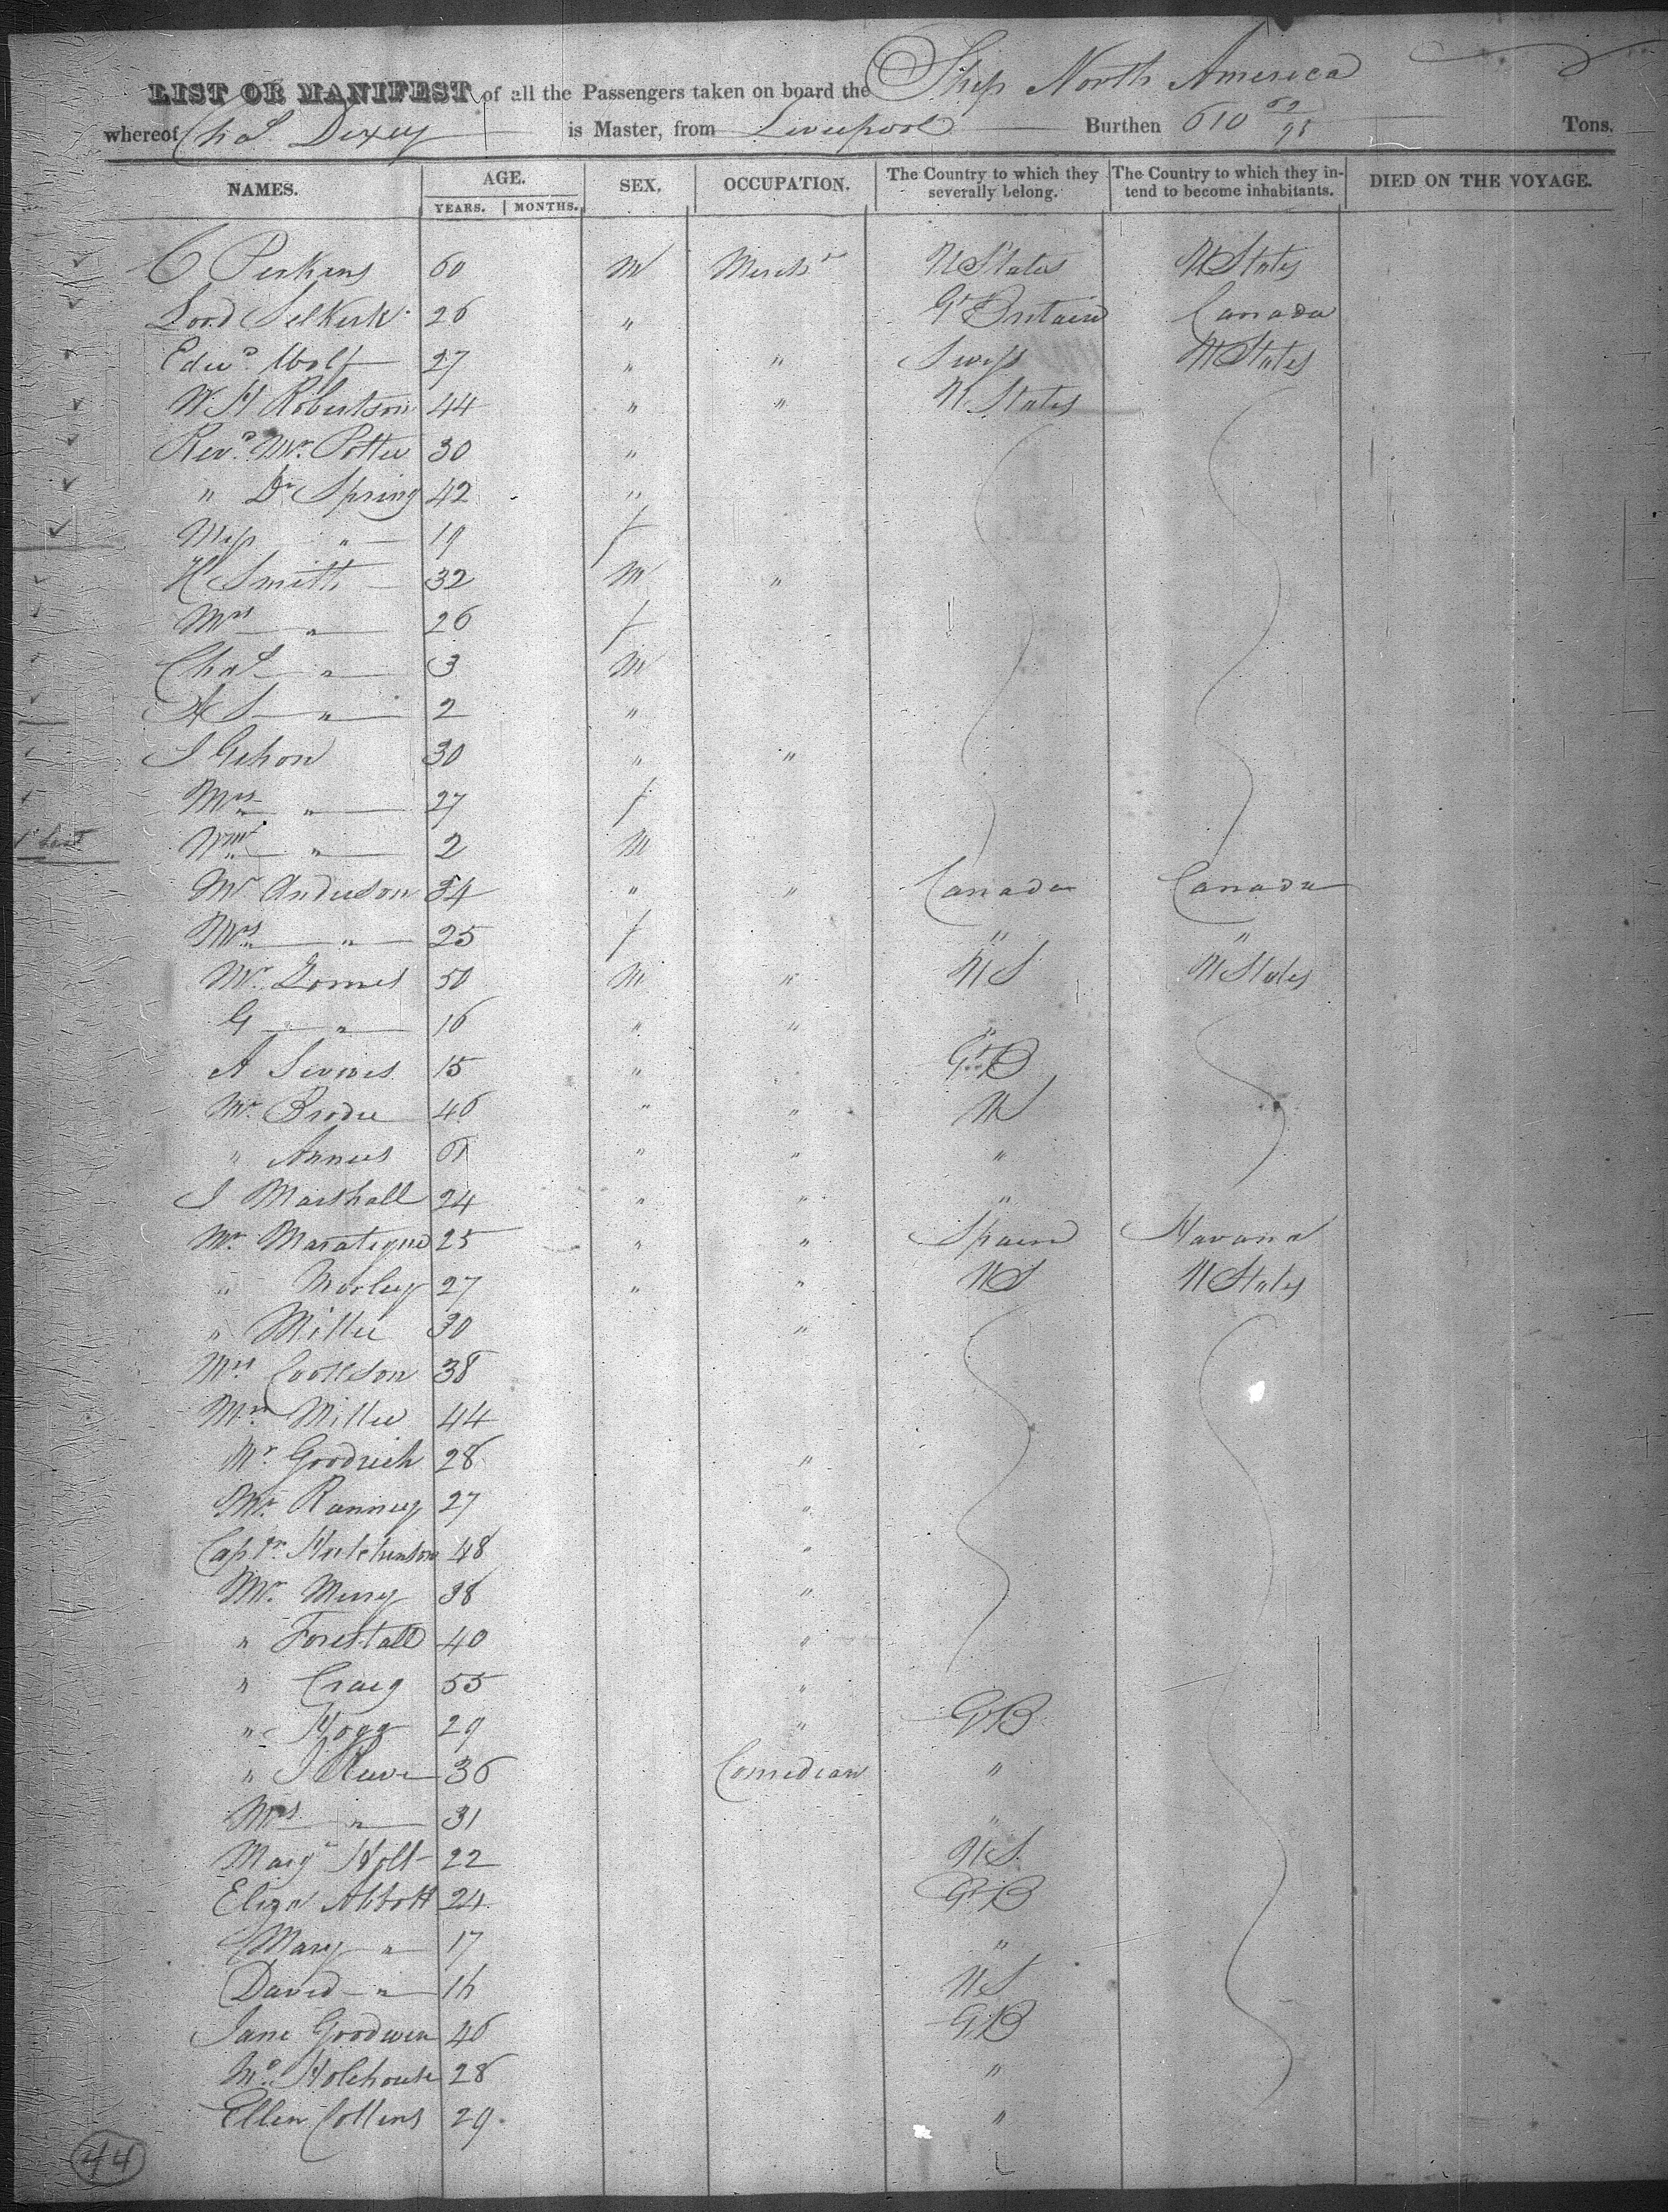 LIST OR MANIFEST of all the Passengers taken on board the Ship North America
whereof Chas. Dixey is Master, from Liverpool Burthen 610 Tons.
NAMES. AGE. SEX. OCCUPATION. The Country to which they severally belong. The Country to which they intend to become inhabitants. DIED ON THE VOYAGE.
YEARS. MONTHS.
C Perkins 60 M Mercht U States U States
Lord Selkirk 26 " Gt Britain Canada
Edwd. Wolf 27 " " Swiss U States
W H Robertson 44 " " U States
Revd. Mr. Potter 30 "
" Dr Spring 42 "
Miss " 19 f
H Smith 32 M "
Mrs " 26 f
Chas " 3 M
A S " 2 "
J Gihon 30 " "
Mrs " 27 f
Wm " 2 M
Mr Anderson 34 " " Canada Canada
Mrs " 25 f " "
Mr. Gomes 50 M " U S U States
G " 16 " " "
A 15 " Gt B
Mr. Brodie 46 " " U S
" 61 " " "
J Marshall 24 " " "
Mr. 25 " " Spain Havana
" Morley 27 " " U S U States
" Miller 30 "
Mrs 38
Mrs. Miller 44
Mr. Goodrich 28 "
Mr. Ranney 27 "
Captn. Hutchinson 48 "
Mr. Merry 38 "
" Forestall 40 "
" Craig 55 "
" Hogg 29 " Gt B
" J Reeve 36 Comedian "
Mrs " 31 "
Margt Holt 22 U S
Eliza Abbott 24 Gt B
Mary " 17 "
David " 16 U S
Jane Goodwin 46 G B
Mo. Holehouse 28 "
Ellen Collins 29 "
44